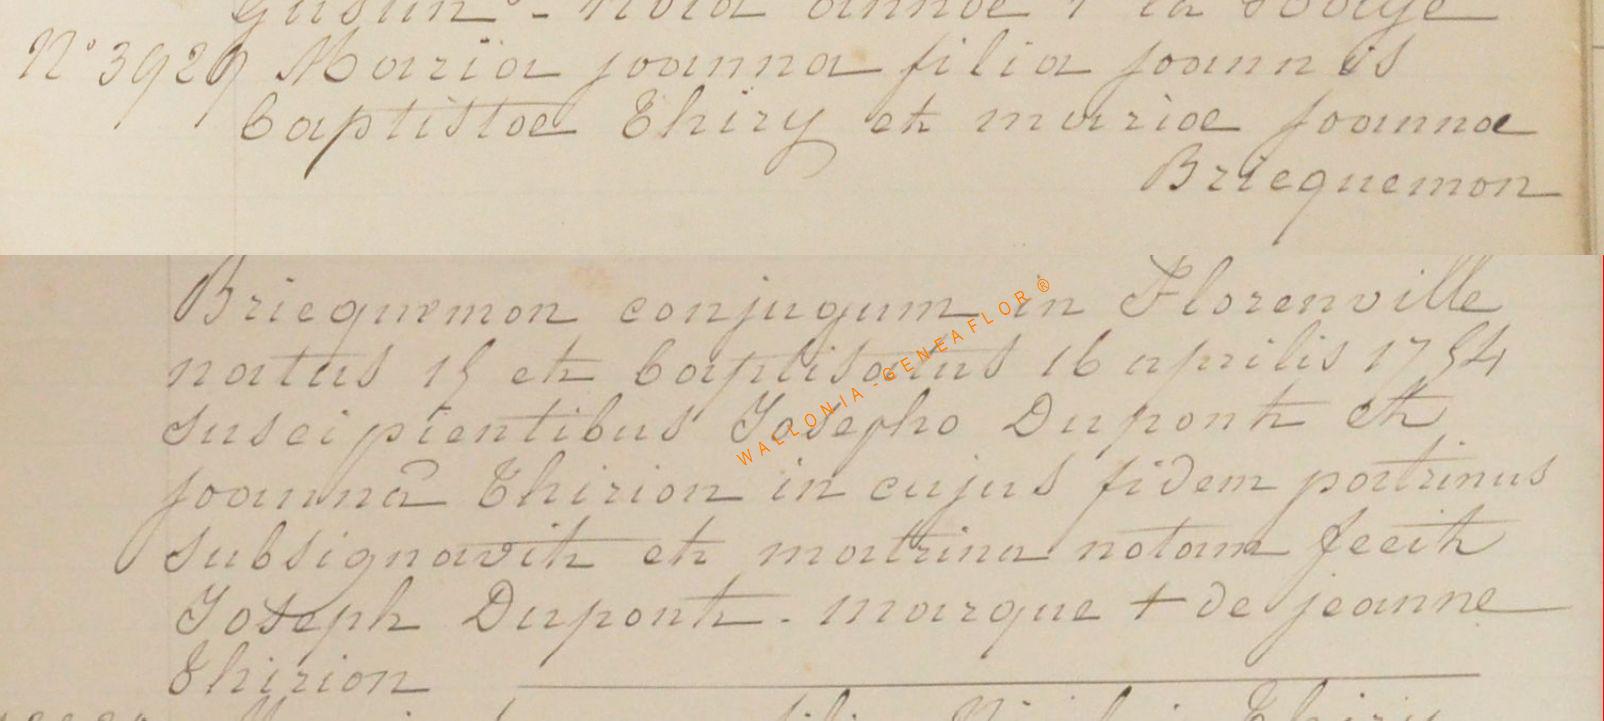 N° 3929 Maria joanna filia joannis
baptistae Thiry et mariae joanna
Briequemon
Briequemon conjugum in Florenville
natus 15 et baptisatus 16 aprilis 1754
suscipientibus Josepho Dupont et
joannâ Thirion in cujus fidem patrinus
subsignavit et matrina notam fecit
Joseph Dupont - marque + de jeanne
Thirion
WALLONIA-GENEAFLOR®